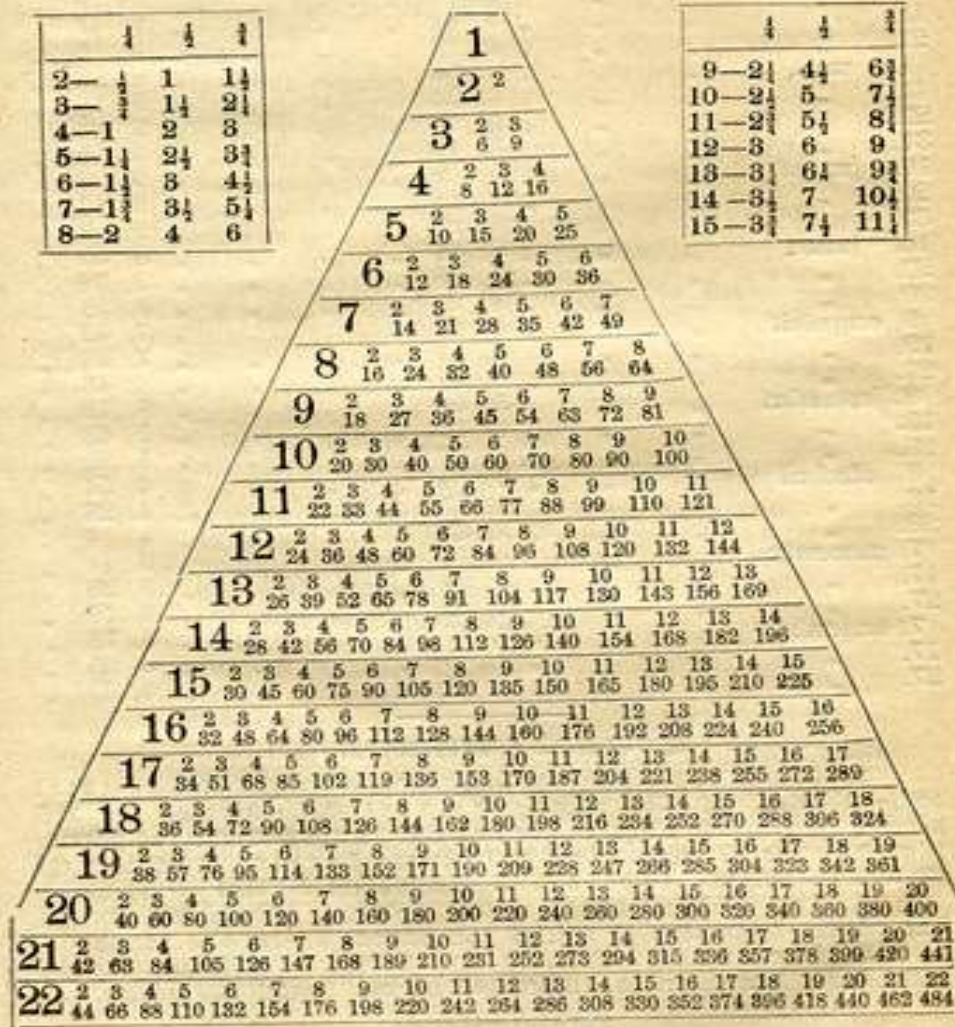 ¼ ½ ¾
2—½ 1 1½
3—¾ 1½ 2¼
4—1 2 3
5—1¼ 2½ 3¾
6—1½ 3 4½
7—1¾ 3½ 5¼
8—2 4 6
¼ ½ ¾
9—2¼ 4½ 6¾
10—2½ 5 7½
11—2¾ 5½ 8¼
12—3 6 9
13—3¼ 6¼ 9¾
14—3½ 7 10½
15—3¾ 7¼ 11¼
1
2 2
3 2 3
6 9
4 2 3 4
8 12 16
5 2 3 4 5
10 15 20 25
6 2 3 4 5 6
12 18 24 30 36
7 2 3 4 5 6 7
14 21 28 35 42 49
8 2 3 4 5 6 7 8
16 24 32 40 48 56 64
9 2 3 4 5 6 7 8 9
18 27 36 45 54 63 72 81
10 2 3 4 5 6 7 8 9 10
20 30 40 50 60 70 80 90 100
11 2 3 4 5 6 7 8 9 10 11
22 33 44 55 66 77 88 99 110 121
12 2 3 4 5 6 7 8 9 10 11 12
24 36 48 60 72 84 96 108 120 132 144
13 2 3 4 5 6 7 8 9 10 11 12 13
26 39 52 65 78 91 104 117 130 143 156 169
14 2 3 4 5 6 7 8 9 10 11 12 13 14
28 42 56 70 84 98 112 126 140 154 168 182 196
15 2 3 4 5 6 7 8 9 10 11 12 13 14 15
30 45 60 75 90 105 120 135 150 165 180 195 210 225
16 2 3 4 5 6 7 8 9 10 11 12 13 14 15 16
32 48 64 80 96 112 128 144 160 176 192 208 224 240 256
17 2 3 4 5 6 7 8 9 10 11 12 13 14 15 16 17
34 51 68 85 102 119 136 153 170 187 204 221 238 255 272 289
18 2 3 4 5 6 7 8 9 10 11 12 13 14 15 16 17 18
36 54 72 90 108 126 144 162 180 198 216 234 252 270 288 306 324
19 2 3 4 5 6 7 8 9 10 11 12 13 14 15 16 17 18 19
38 57 76 95 114 133 152 171 190 209 228 247 266 285 304 323 342 361
20 2 3 4 5 6 7 8 9 10 11 12 13 14 15 16 17 18 19 20
40 60 80 100 120 140 160 180 200 220 240 260 280 300 320 340 360 380 400
21 2 3 4 5 6 7 8 9 10 11 12 13 14 15 16 17 18 19 20 21
42 63 84 105 126 147 168 189 210 231 252 273 294 315 336 357 378 399 420 441
22 2 3 4 5 6 7 8 9 10 11 12 13 14 15 16 17 18 19 20 21 22
44 66 88 110 132 154 176 198 220 242 264 286 308 330 352 374 396 418 440 462 484